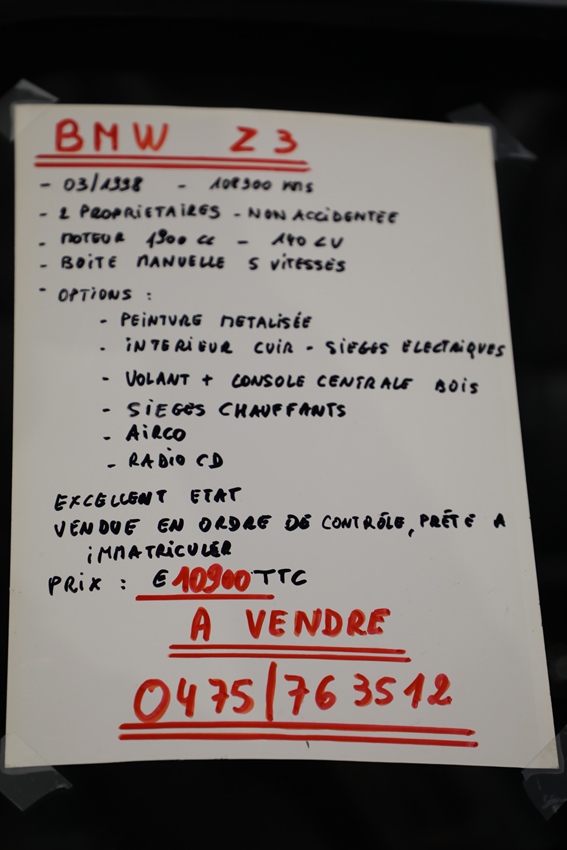 BMW Z3
- 03/1998 - 108900 kms
- 2 PROPRIETAIRES - NON ACCIDENTEE
- MOTEUR 1900 cc - 140 CV
- BOITE MANUELLE 5 VITESSES
- OPTIONS :
- PEINTURE METALISÉE
- INTERIEUR CUIR - SIEGES ELECTRIQUES
- VOLANT + CONSOLE CENTRALE BOIS
- SIEGES CHAUFFANTS
- AIRCO
- RADIO CD
EXCELLENT ETAT
VENDUE EN ORDRE DE CONTRÔLE, PRÊTE A
IMMATRICULER
PRIX : E 10900 TTC
A VENDRE
0475/763512